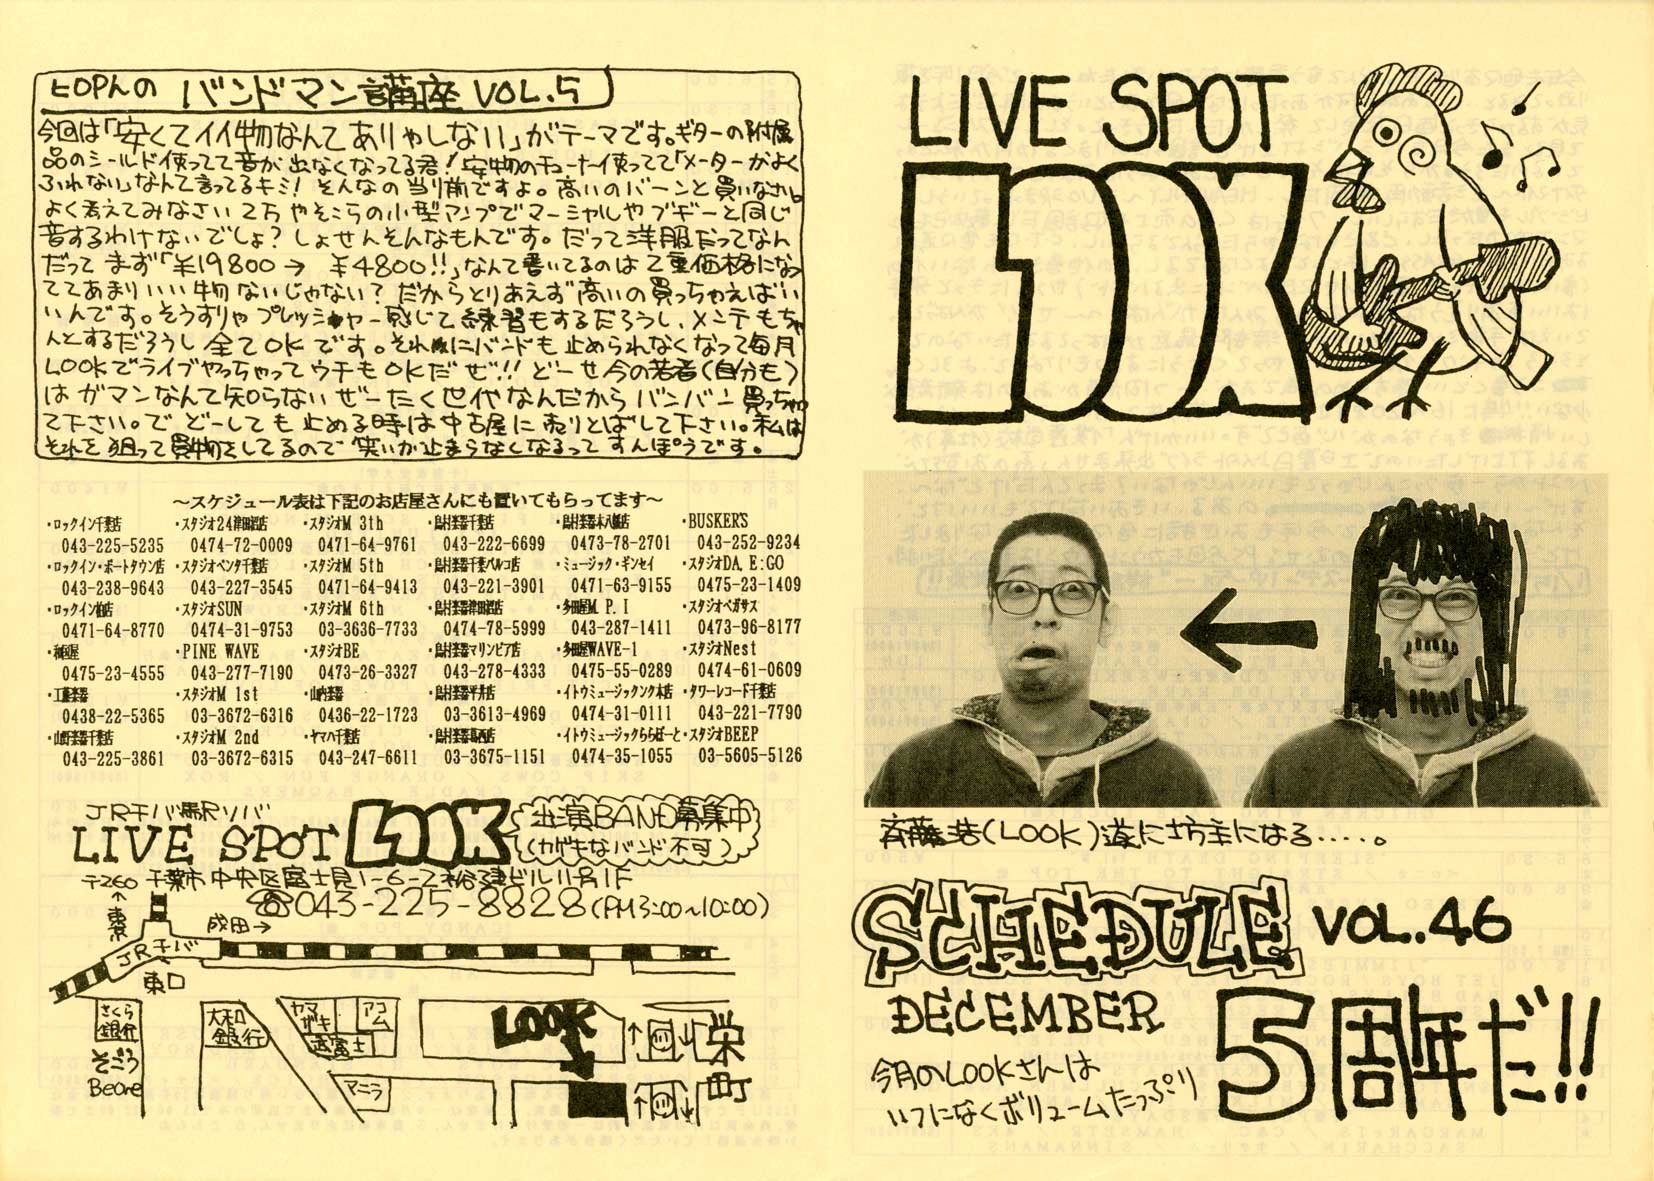 ヒロPんの バンドマン講座 VOL.5
今回は「安くてイイ物なんてありゃしない」がテーマです。ギターの附属
品のシールド使ってて音が出なくなってる君! 安物のチューナー使ってて「メーターがよく
ふれない」なんて言ってるキミ! そんなの当り前ですよ。高いのバーンと買いなさい。
よく考えてみなさい 2万やそこらの小型アンプでマーシャルやブギーと同じ
音するわけないでしょ? しょせんそんなもんです。だって洋服だってなん
だって まず「¥19800→ ¥4800!!」なんて書いてるのは2重価格になっ
ててあまりいい物ないじゃない? だからとりあえず高いの買っちゃえばい
いんです。そうすりゃプレッシャー感じて練習もするだろうし、メンテもちゃ
んとするだろうし全てOKです。それにバンドも止められなくなって毎月
LOOKでライブやっちゃってウチもOKだぜ!! どーせ今の若者(自分も)
はガマンなんて知らないぜーたく世代なんだからバンバン買っちゃっ
て下さい。で どーしても止める時は中古屋に売りとばして下さい。私は
それを狙って買物をしてるので笑いが止まらなくなるってすんぽうです。
〜スケジュール表は下記のお店屋さんにも置いてもらってます〜
・ロックイン千葉店 ・スタジオ24津田沼店 ・スタジオM 3th ・島村楽器千葉店 ・島村楽器本八幡店 ・BUSKER'S
043-225-5235 0474-72-0009 0471-64-9761 043-222-6699 0473-78-2701 043-252-9234
・ロックイン・ポートタウン店 ・スタジオペンタ千葉店 ・スタジオM 5th ・島村楽器千葉パルコ店 ・ミュージック・ギンセイ ・スタジオDA.E:GO
043-238-9643 043-227-3545 0471-64-9413 043-221-3901 0471-63-9155 0475-23-1409
・ロックイン柏店 ・スタジオSUN ・スタジオM 6th ・島村楽器津田沼店 ・多田屋M.P.I ・スタジオペガサス
0471-64-8770 0474-31-9753 03-3636-7733 0474-78-5999 043-287-1411 0473-96-8177
・PINE WAVE ・スタジオBE ・島村楽器マリンピア店 ・多田屋WAVE-1 ・スタジオNest
0475-23-4555 043-277-7190 0473-26-3327 043-278-4333 0475-55-0289 0474-61-0609
・工藤楽器 ・スタジオM 1st ・山内楽器 ・島村楽器平井店 ・イトウミュージックタンク本店 ・タワーレコード千葉店
0438-22-5365 03-3672-6316 0436-22-1723 03-3613-4969 0474-31-0111 043-221-7790
・山野楽器千葉店 ・スタジオM 2nd ・ヤマハ千葉店 ・島村楽器葛西店 ・イトウミュージックららぽーと ・スタジオBEEP
043-225-3861 03-3672-6315 043-247-6611 03-3675-1151 0474-35-1055 03-5605-5126
JR千バ駅ソバ
LIVE SPOT LOOK
出演BAND募集中
(カゲキなバンド不可)
〒260 千葉市中央区富士見1-6-2 裕建ビル11号1F
☎043-225-8828(PM3:00〜10:00)
↑東京
成田→
JR千バ
東口
さくら銀行
そごう
BeOne
大和銀行
ヤマザキ
アコム
富士
マニラ
LOOK
栄町
LIVE SPOT
LOOK
斉藤浩(LOOK)遂に坊主になる・・・・。
SCHEDULE VOL..46
DECEMBER
5周年だ!!
今月のLOOKさんは
いつになくボリュームたっぷり